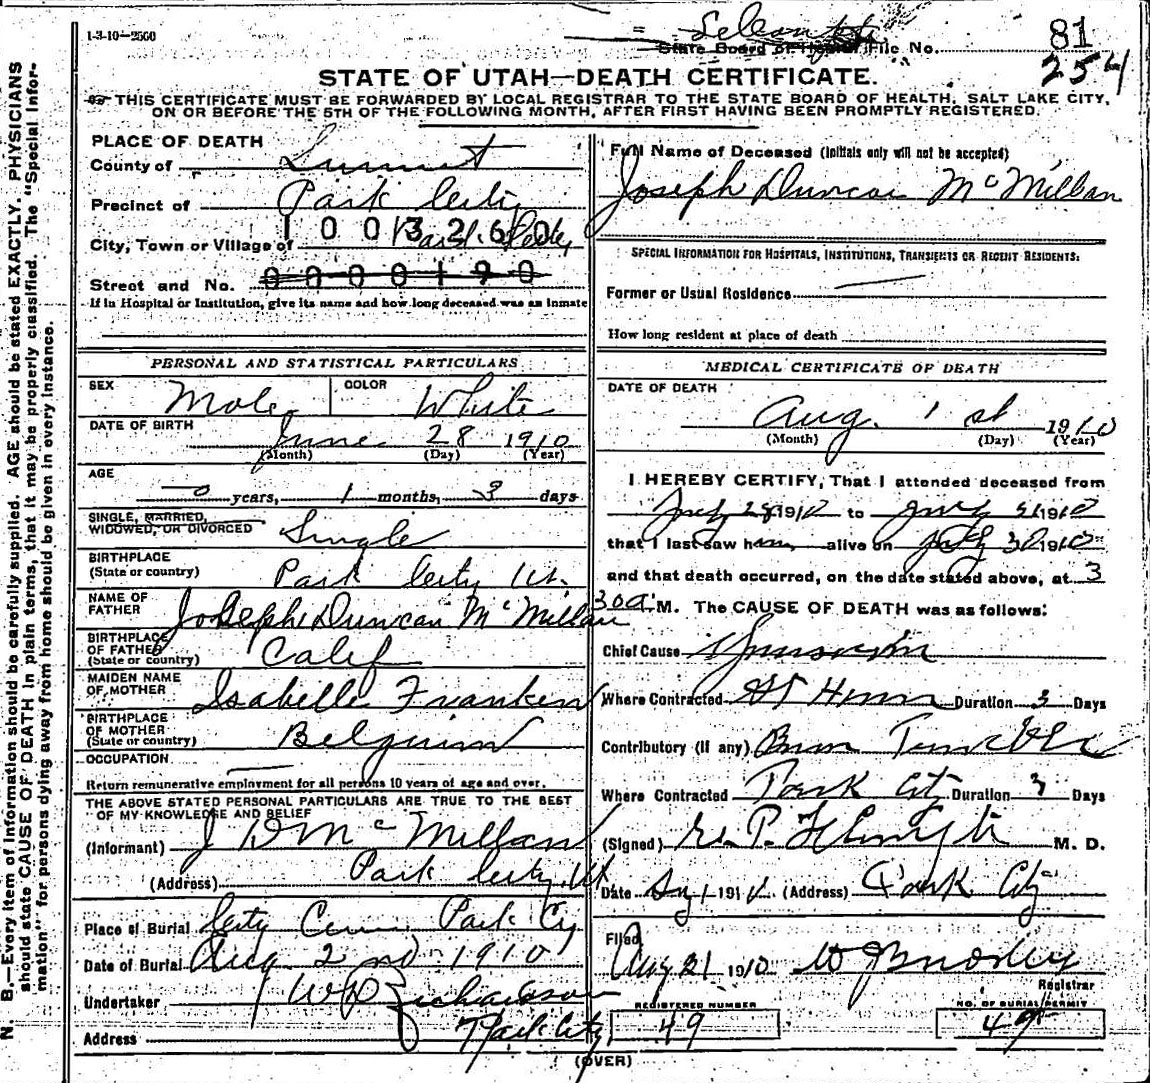 1-3-10-2500
81
State Board of Health File No.
254
STATE OF UTAH—DEATH CERTIFICATE.
THIS CERTIFICATE MUST BE FORWARDED BY LOCAL REGISTRAR TO THE STATE BOARD OF HEALTH, SALT LAKE CITY,
ON OR BEFORE THE 5TH OF THE FOLLOWING MONTH, AFTER FIRST HAVING BEEN PROMPTLY REGISTERED.
N. B.—Every item of information should be carefully supplied. AGE should be stated EXACTLY. PHYSICIANS
should state CAUSE OF DEATH in plain terms, that it may be properly classified. The "Special Infor-
mation" for persons dying away from home should be given in every instance.
PLACE OF DEATH
County of Summit
Precinct of Park City
1003260
City, Town or Village of Park City
Street and No. 0000190
If in Hospital or Institution, give its name and how long deceased was an inmate
Full Name of Deceased (Initials only will not be accepted)
Joseph Duncan McMillan
SPECIAL INFORMATION FOR HOSPITALS, INSTITUTIONS, TRANSIENTS OR RECENT RESIDENTS:
Former or Usual Residence
How long resident at place of death
PERSONAL AND STATISTICAL PARTICULARS
SEX Male COLOR White
DATE OF BIRTH June 28 1910
(Month) (Day) (Year)
AGE
0 years, 1 months, 3 days
SINGLE, MARRIED,
WIDOWED, OR DIVORCED Single
BIRTHPLACE
(State or country) Park City Ut.
NAME OF
FATHER Joseph Duncan McMillan
BIRTHPLACE
OF FATHER
(State or country) Calif
MAIDEN NAME
OF MOTHER Isabelle Franken
BIRTHPLACE
OF MOTHER
(State or country) Belgium
OCCUPATION
Return remunerative employment for all persons 10 years of age and over.
THE ABOVE STATED PERSONAL PARTICULARS ARE TRUE TO THE BEST
OF MY KNOWLEDGE AND BELIEF
(Informant) J D McMillan
(Address) Park City Ut
Place of Burial City Cem Park Cy
Date of Burial Aug 2nd 1910
Undertaker W D Richardson
Address Park City
MEDICAL CERTIFICATE OF DEATH
DATE OF DEATH
Aug. 1st 1910
(Month) (Day) (Year)
I HEREBY CERTIFY, That I attended deceased from
July 28 1910 to July 31 1910
that I last saw him alive on July 30 1910
and that death occurred, on the date stated above, at 3
30 a. M. The CAUSE OF DEATH was as follows:
Chief Cause
Where Contracted At Home Duration 3 Days
Contributory (if any)
Where Contracted Park City Duration 3 Days
(Signed) M. D.
Date Aug 1 1910 (Address) Park City
Filed
Aug 21 1910
Registrar
REGISTERED NUMBER
49
NO. OF BURIAL PERMIT
49
(OVER)